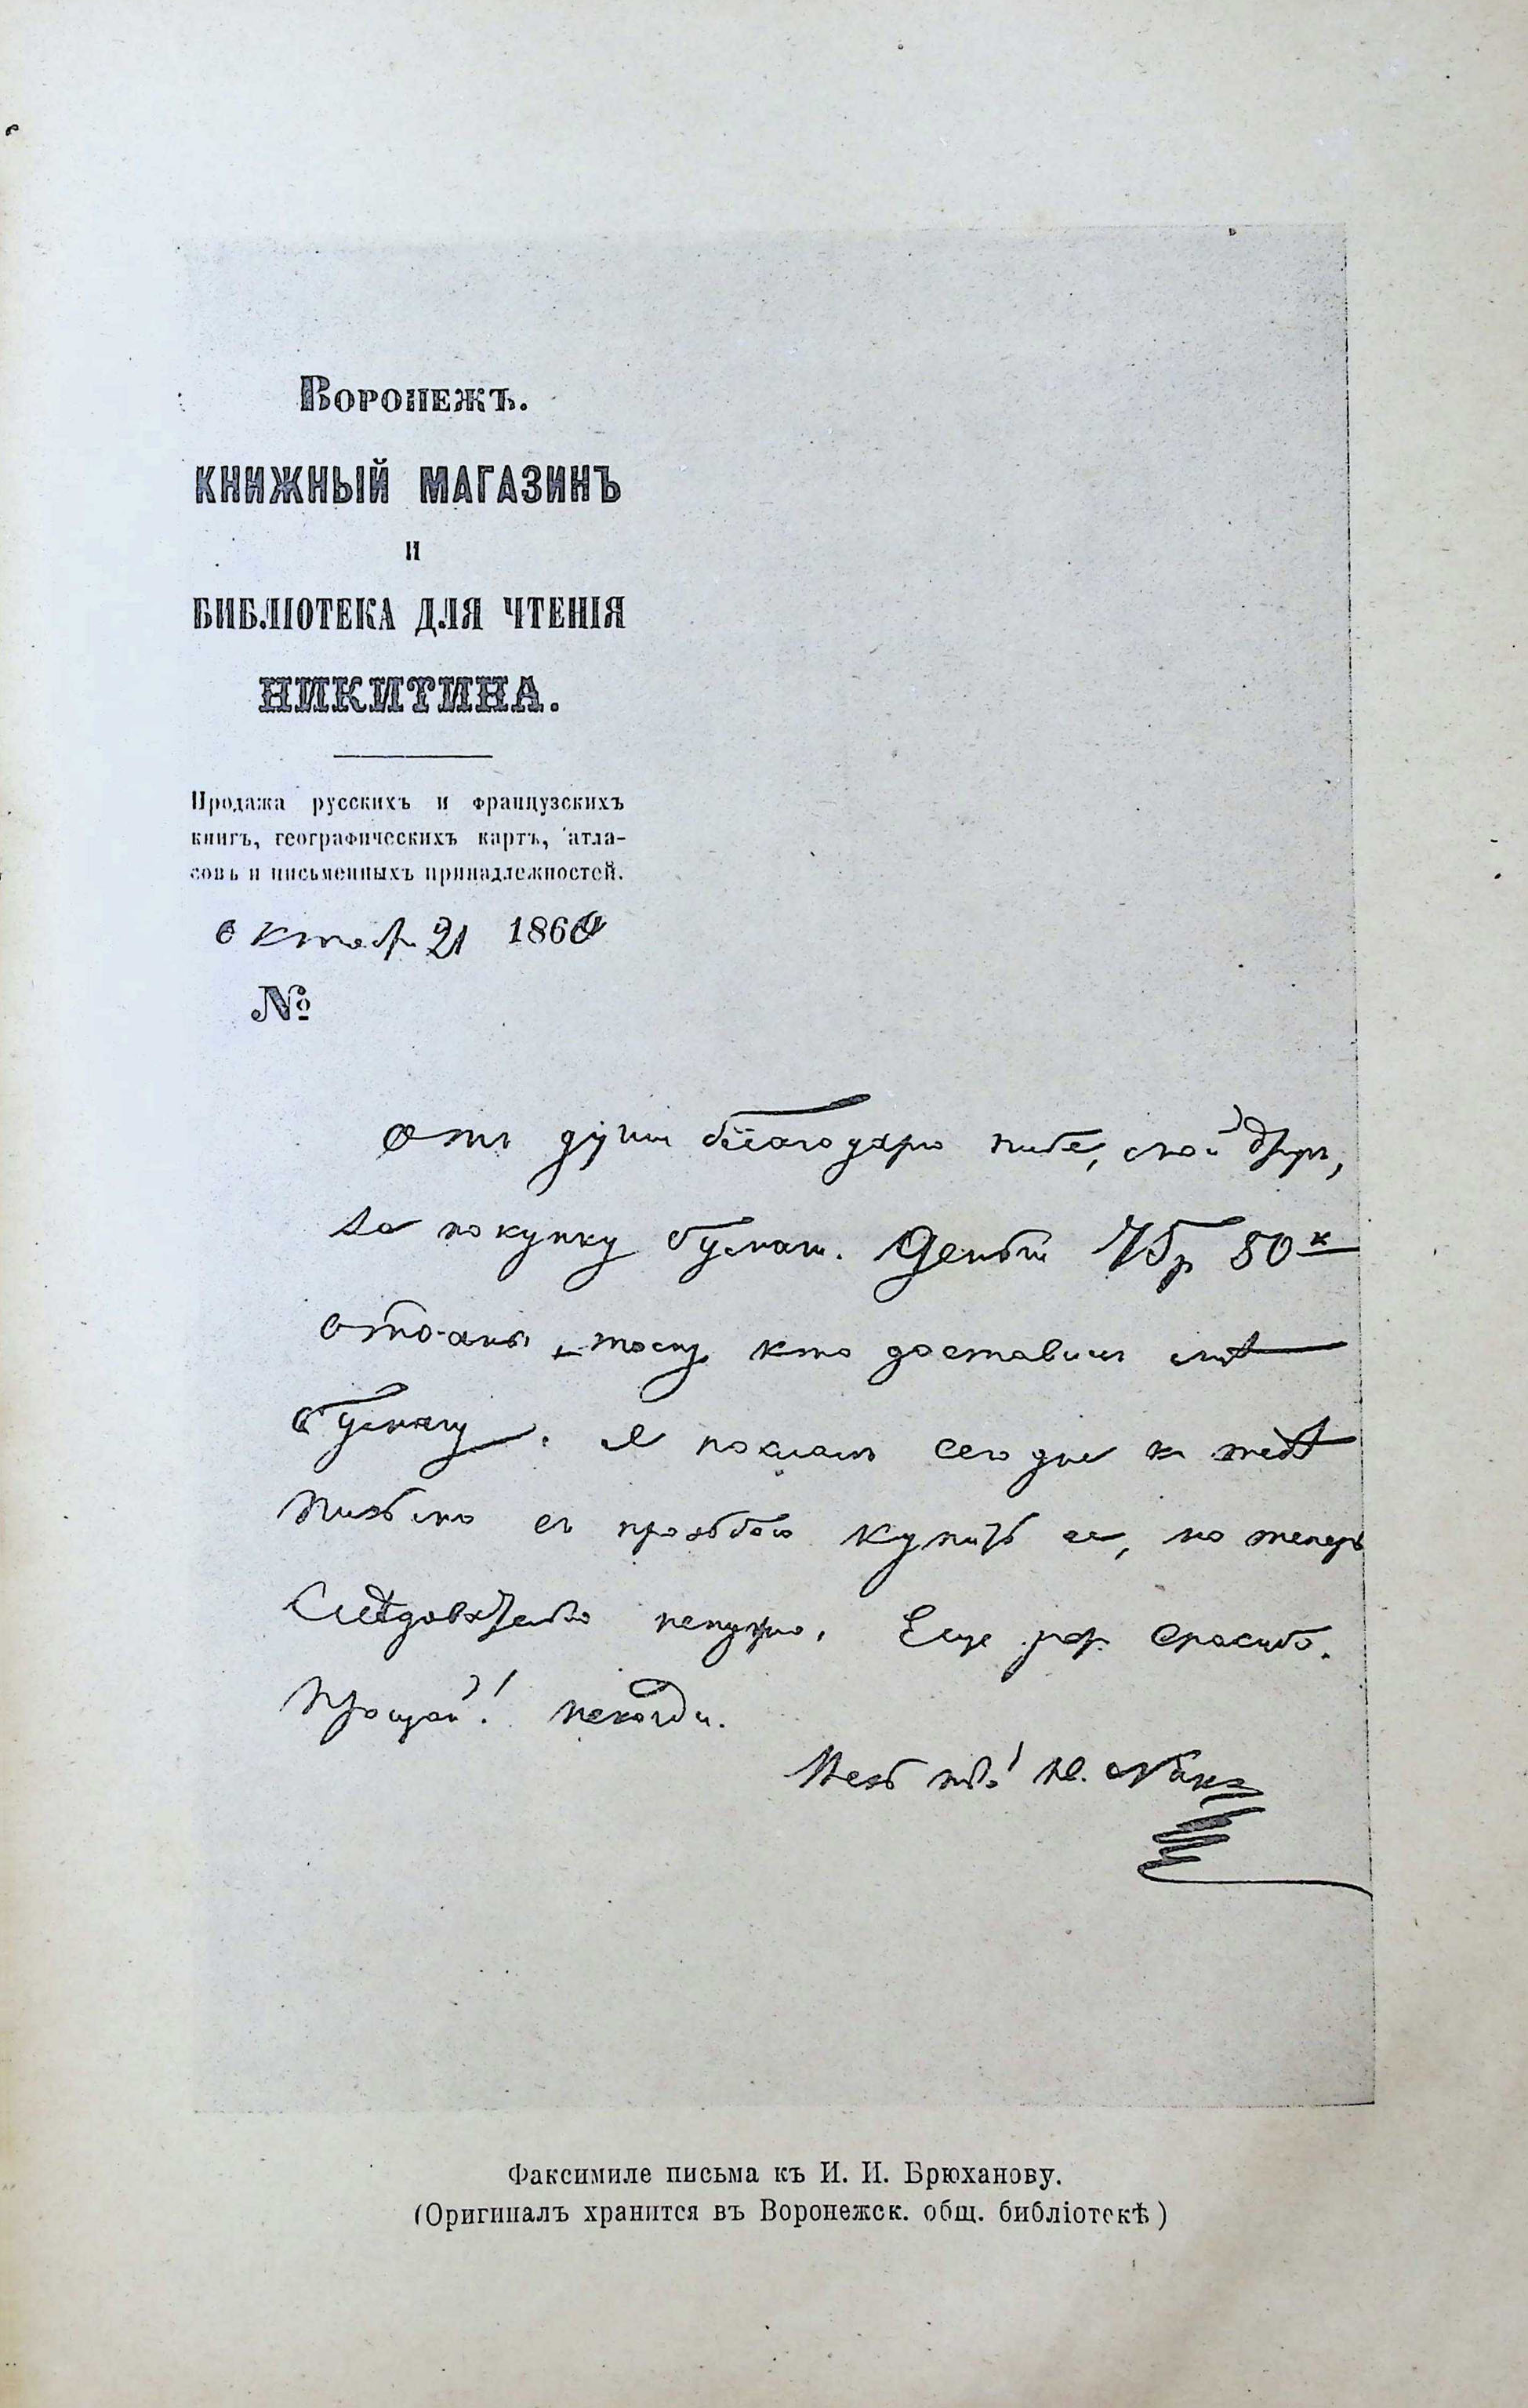 Воронежъ.
КНИЖНЫЙ МАГАЗИНЪ
И
БИБЛІОТЕКА ДЛЯ ЧТЕНІЯ
НИКИТИНА.
Продажа русскихъ и французскихъ
книгъ, географическихъ картъ, атла-
совъ и письменныхъ принадлежностей.
Октября 21 1860
№
Отъ души благодарю тебя, мой другъ,
за покупку бумаги. Деньги 75 р 80 к
отданы тому кто доставилъ мнѣ
бумагу. Я послалъ сегодня къ тебѣ
письмо съ прозьбою купить ее, но теперь
слѣдовательно ненужно. Еще раз спасибо.
Прощай! некогда.
Весь твой И. Никит
Факсимиле письма къ И. И. Брюханову.
(Оригиналъ хранится въ Воронежск. общ. библіотекѣ)